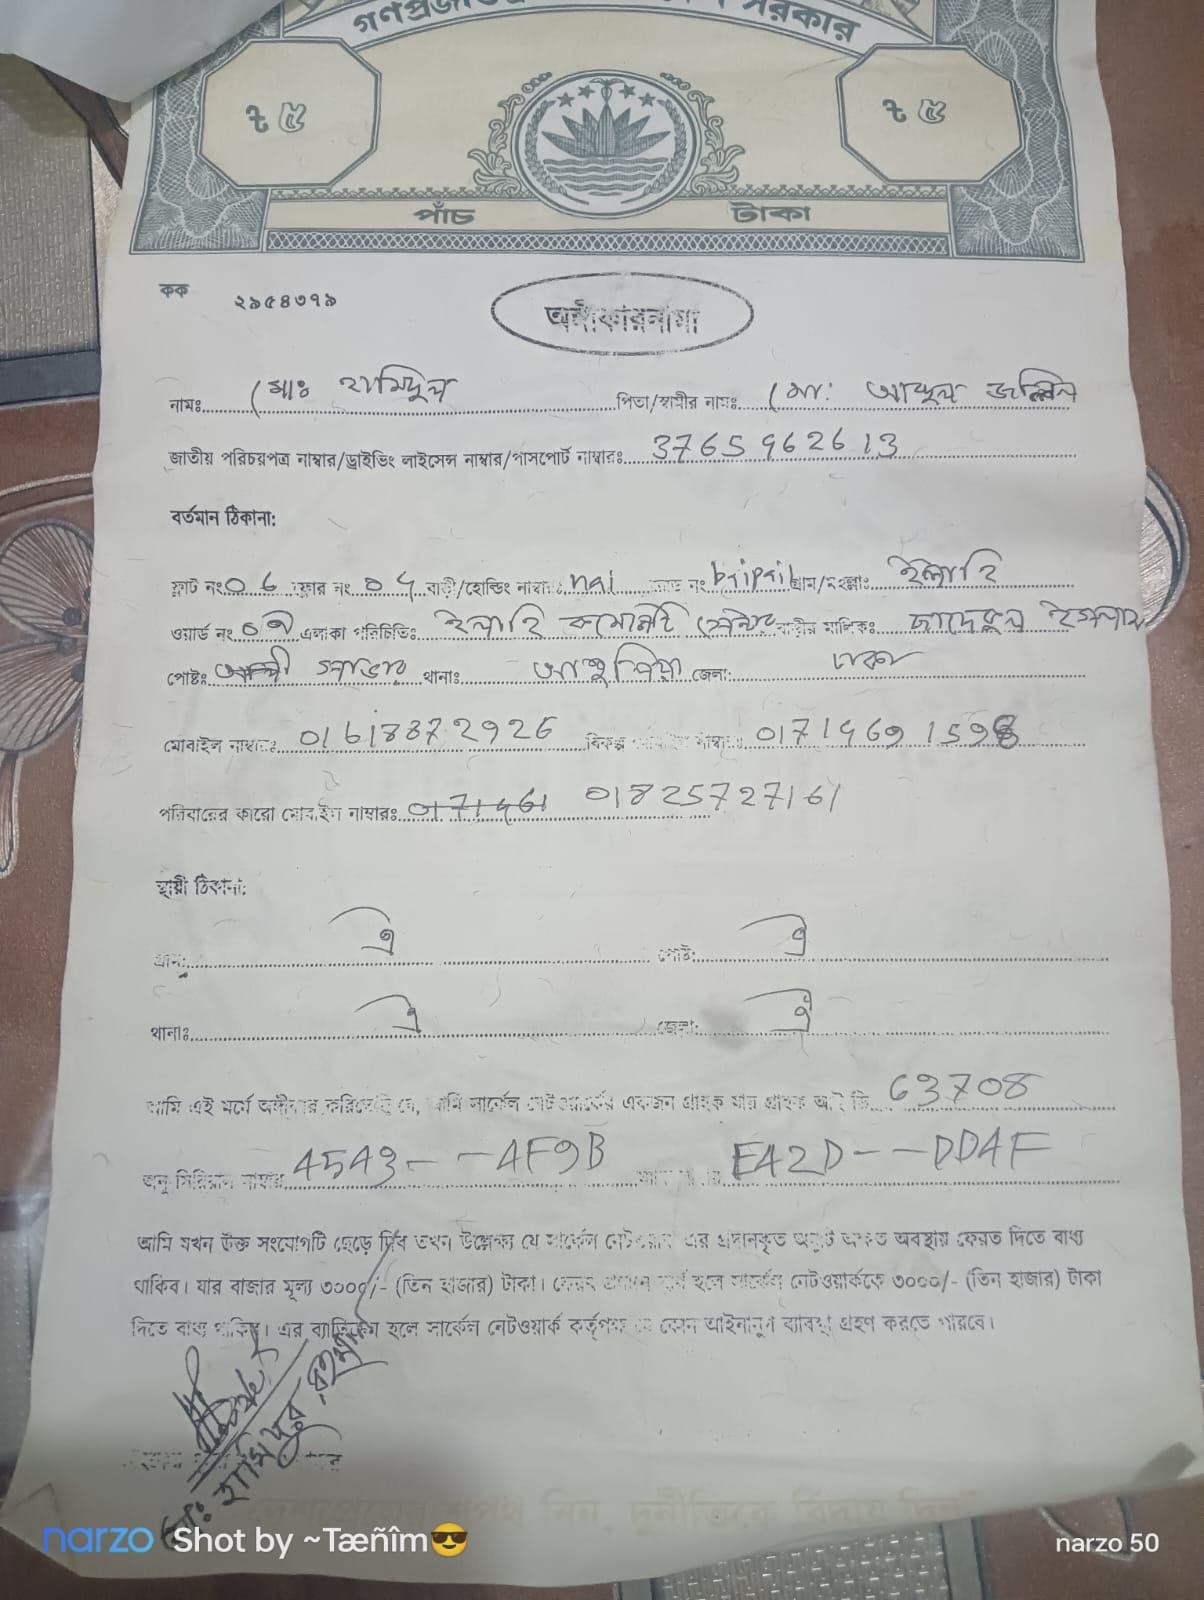 সরকার
৳ ৫ ৳ ৫
পাঁচ টাকা
কক ২৯৫৪৩৭৯
অঙ্গীকারনামা
নামঃ মোঃ হামিদুল পিতা/স্বামীর নামঃ মো: আব্দুল জলিল
জাতীয় পরিচয়পত্র নাম্বার/ড্রাইভিং লাইসেন্স নাম্বার/পাসপোর্ট নাম্বারঃ 3765962613
বর্তমান ঠিকানা:
ফ্লাট নং 06 ফ্লোর নং 04 বাড়ী/হোল্ডিং নাম্বারঃ nai রোড নং গ্রাম/মহল্লাঃ ইলাহি
ওয়ার্ড নং 09 এলাকা পরিচিতিঃ ইলাহি কমেনিটি সেন্টার বাড়ীর মালিকঃ জাদেদুল ইসলাম
পোষ্টঃ সাভার থানাঃ আশুলিয়া জেলা: ঢাকা
মোবাইল নাম্বারঃ 01618372926 বিকল্প নাম্বারঃ
পরিবারের কারো মোবাইল নাম্বারঃ 01825727161
স্থায়ী ঠিকানা:
গ্রাম: ঐ পোষ্ট: ঐ
থানাঃ ঐ জেলা: ঐ
আমি এই মর্মে অঙ্গীকার করিতেছি যে, আমি সার্কেল নেটওয়ার্কের একজন গ্রাহক যার গ্রাহক আই ডি 63708
অনু সিরিয়াল নাম্বার 4543-- -AF9B EA2D---DD4F
আমি যখন উক্ত সংযোগটি ছেড়ে দিব তখন উল্লেক্ষ্য যে সার্কেল নেটওয়ার্ক এর প্রদানকৃত অনুটি অক্ষত অবস্থায় ফেরত দিতে বাধ্য
থাকিব। যার বাজার মূল্য ৩০০০/- (তিন হাজার) টাকা। ফেরৎ প্রদানে ব্যর্থ হলে সার্কেল নেটওয়ার্ককে ৩০০০/- (তিন হাজার) টাকা
দিতে বাধ্য থাকিব। এর ব্যতিক্রম হলে সার্কেল নেটওয়ার্ক কর্তৃপক্ষ যে কোন আইনানুগ ব্যাবস্থা গ্রহণ করতে পারবে।
মোঃ হামিদুর রহমান
দেশপ্রেমের শপথ নিন, দুর্নীতিকে বিদায় দিন
narzo Shot by ~Tæñîm😎 narzo 50